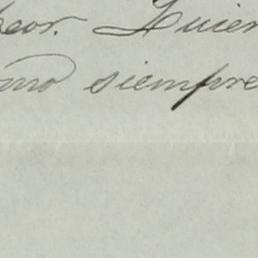 peor. Quier
omo siempre